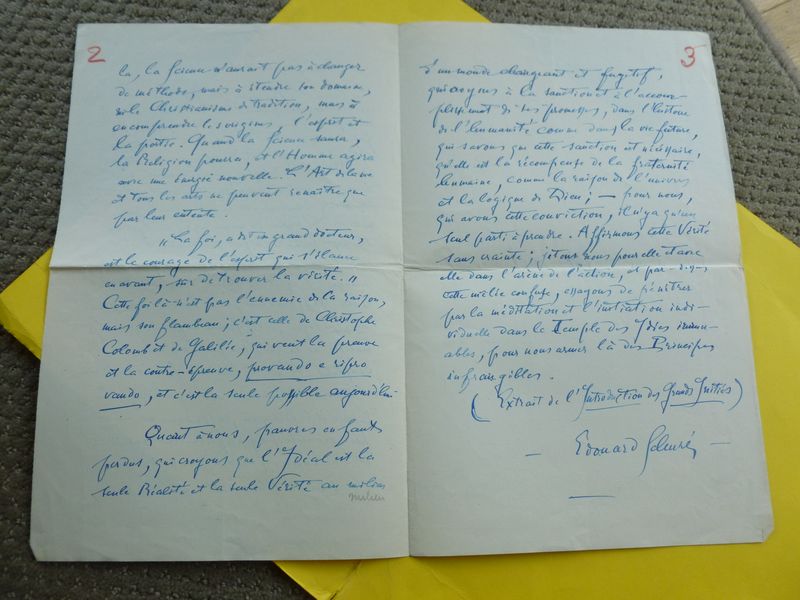 2
la, la Science n'aurait pas à changer
de méthode, mais à étendre son domaine,
ni le Christianisme de tradition, mais à
en comprendre les origines, l'esprit et
la portée. Quand la Science saura,
la Religion pourra, et l'Homme agira
avec une énergie nouvelle. L'Art de la vie
et tous les arts ne peuvent renaître que
par leur entente.
"La foi, a dit un grand docteur,
est le courage de l'esprit qui s'élance
en avant, sûr de trouver la vérité."
Cette foi là n'est pas l'ennemie de la raison,
mais son flambeau; c'est celle de Christophe
Colomb et de Galilée, qui veut la preuve
et la contre-épreuve, provando e ripro
vando, et c'est la seule possible aujourd'hui
Quant à nous, pauvres enfants
perdus, qui croyons que l'Idéal est la
seule Réalité et la seule Vérité au milieu
milieu
3
d'un monde changeant et fugitif,
qui croyons à la sanction et à l'accom-
plissement de ses promesses, dans l'histoire
de l'humanité comme dans la vie future,
qui savons que cette sanction est nécessaire,
qu'elle est la récompense de la fraternité
humaine, comme la raison de l'univers
et la logique de Dieu; — pour nous,
qui avons cette conviction, il n'y a qu'un
seul parti à prendre. Affirmons cette Vérité
sans crainte; jetons nous pour elle et avec
elle dans l'arène de l'action, et par-dessus
cette mêlée confuse, essayons de pénétrer
par la méditation et l'initiation indi-
viduelle dans le Temple des Idées immu-
ables, pour nous armer là des Principes
infrangibles.
(Extrait de l'Introduction des Grands Initiés)
— Edouard Schuré —